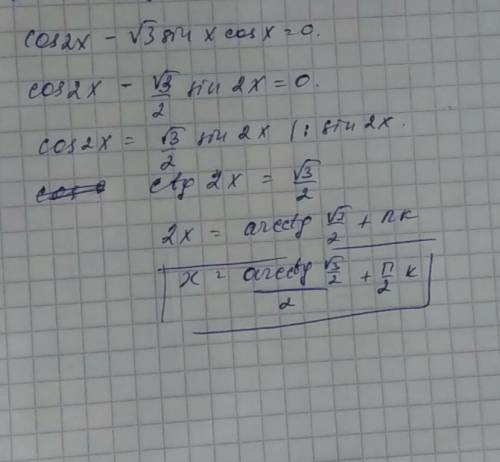 cos2x - √3 sin x cos x = 0.
cos2x - √3/2 sin 2x = 0.
cos2x = √3/2 sin 2x /: sin 2x.
ctg 2x = √3/2
2x = arcctg √3/2 + πk
x = arcctg √3/2 / 2 + π/2 k